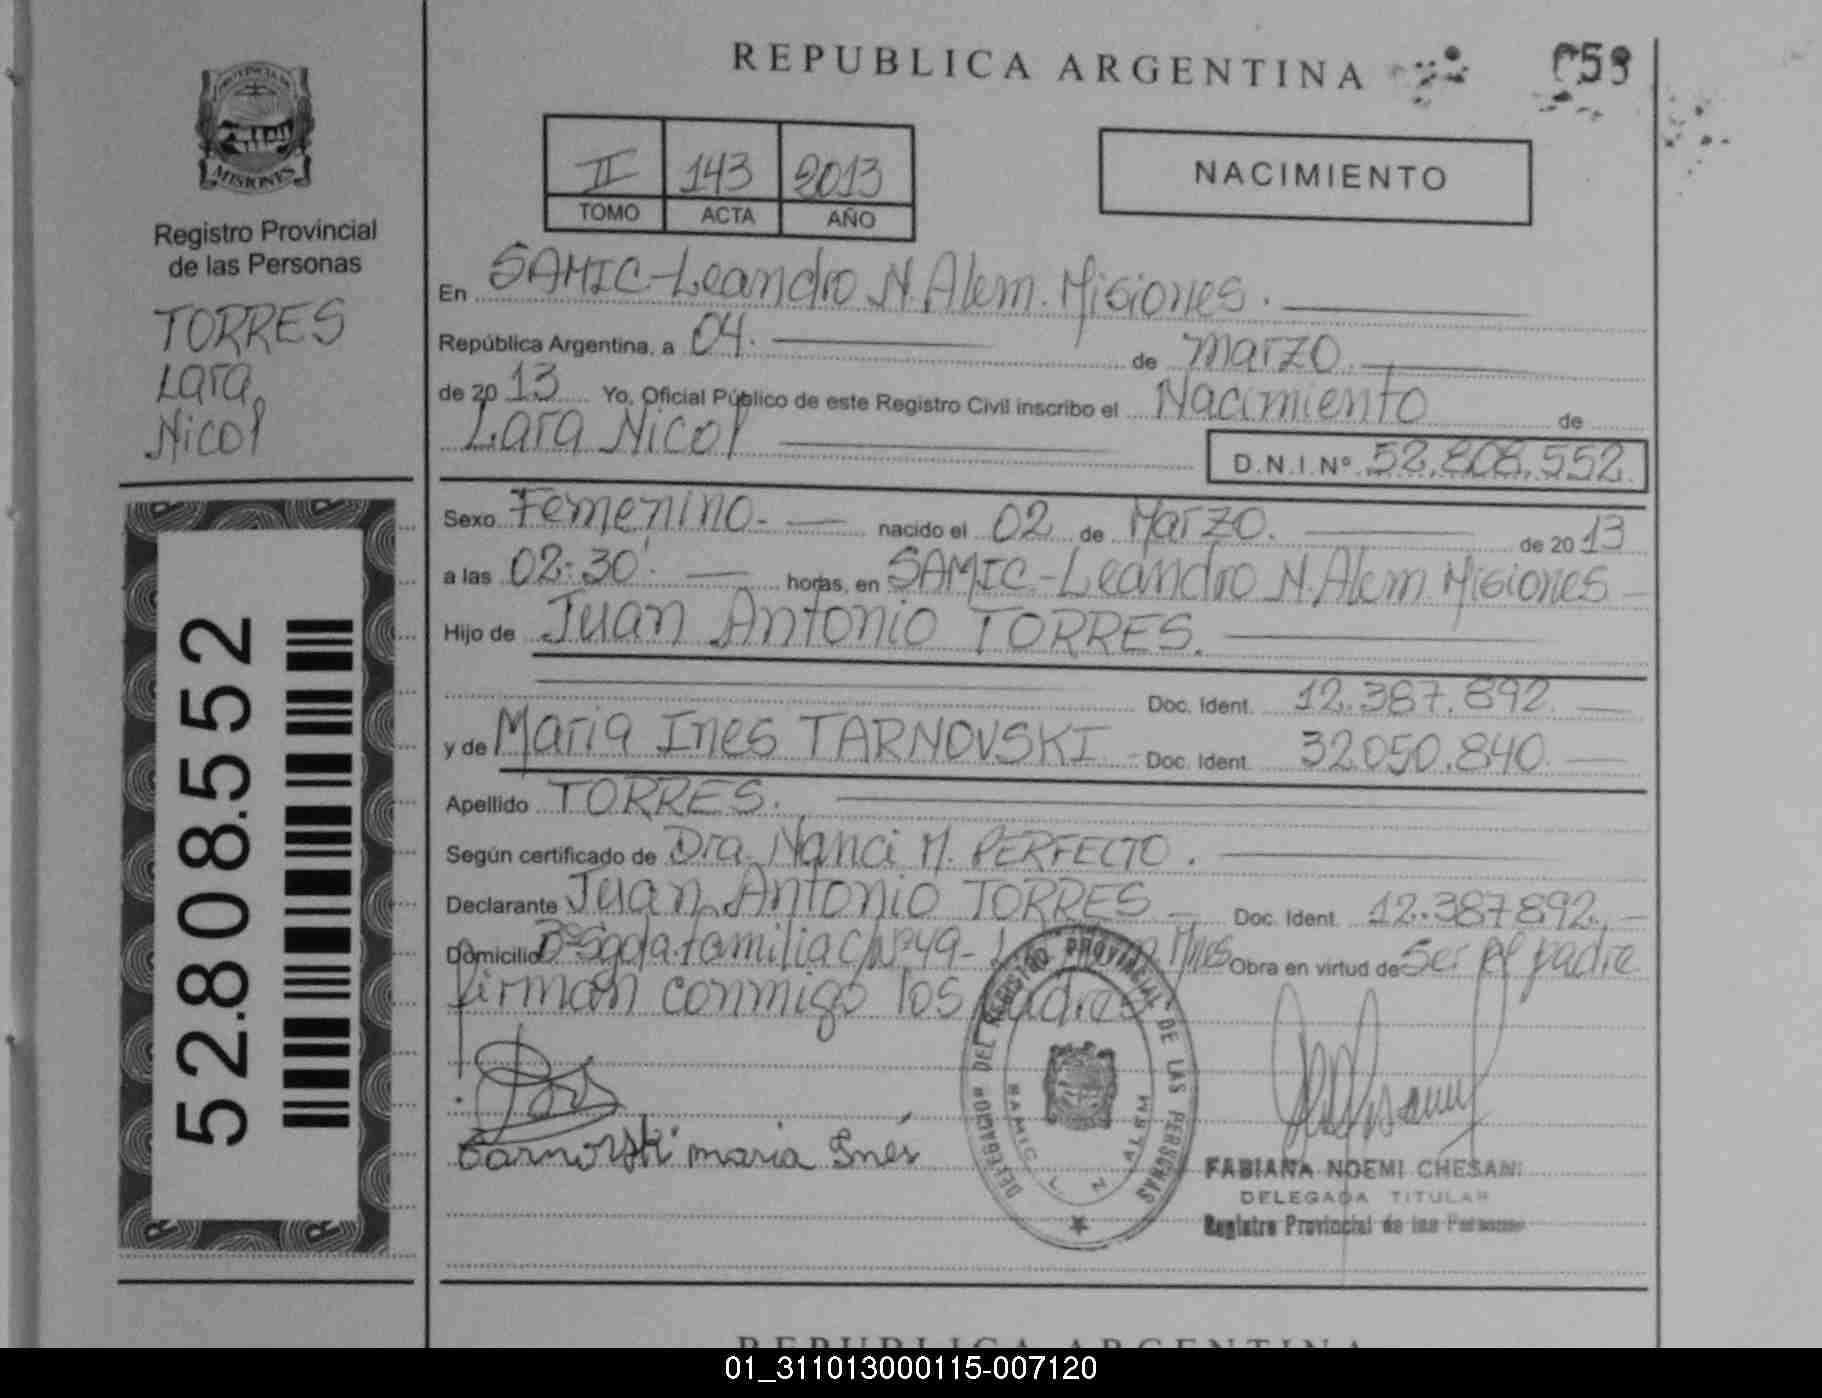 REPUBLICA ARGENTINA
058
PROVINCIA DE
MISIONES
Registro Provincial
de las Personas
TORRES
Lara
Nicol
52.808.552
II 143 2013
TOMO ACTA AÑO
NACIMIENTO
En SAMIC-Leandro N. Alem. Misiones.
República Argentina, a 04. de Marzo.
de 20 13 Yo, Oficial Público de este Registro Civil inscribo el Nacimiento de
Lara Nicol
D.N.I.Nº 52.808.552.
Sexo Femenino.- nacido el 02 de Marzo. de 20 13
a las 02:30'. horas, en SAMIC-Leandro N. Alem. Misiones
Hijo de Juan Antonio TORRES.
Doc. Ident. 12.387.892.
y de Maria Ines TARNOVSKI Doc. Ident. 32.050.840.
Apellido TORRES.
Según certificado de Dra. Nanci M. PERFECTO.
Declarante Juan Antonio TORRES Doc. Ident. 12.387.892.
Domicilio Bº Sgda. familia C/Nº 49- Mnes Obra en virtud de Ser el padre
firman conmigo los padres
Tarnovski maria Inés
DELEGACION DEL REGISTRO PROVINCIAL DE LAS PERSONAS
SAMIC L. N. ALEM
FABIANA NOEMI CHESANI
DELEGADA TITULAR
Registro Provincial de las Personas
REPUBLICA ARGENTINA
01_311013000115-007120